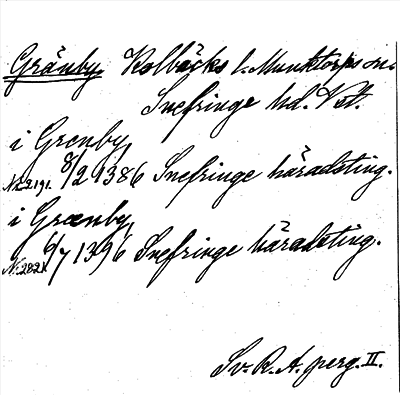 Gränby. Kolbäcks l. Munktorps sn.
Snefringe hd. Vstl.
i Grenby,
N. 2191. 8/2 1386 Snefringe häradsting.
i Grænby,
N. 2821. 6/7 1396 Snefringe häradsting.
Sv. R. A. perg. II.